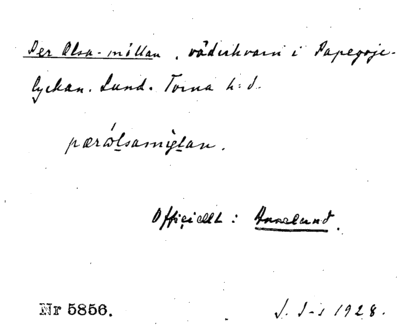 Per Olsa-möllan, väderkvarn i Papegoje-
lyckan. Lund. Torna h:d.
pærⱥlsamiglan.
Officiellt:
Nr 5856.
1928.